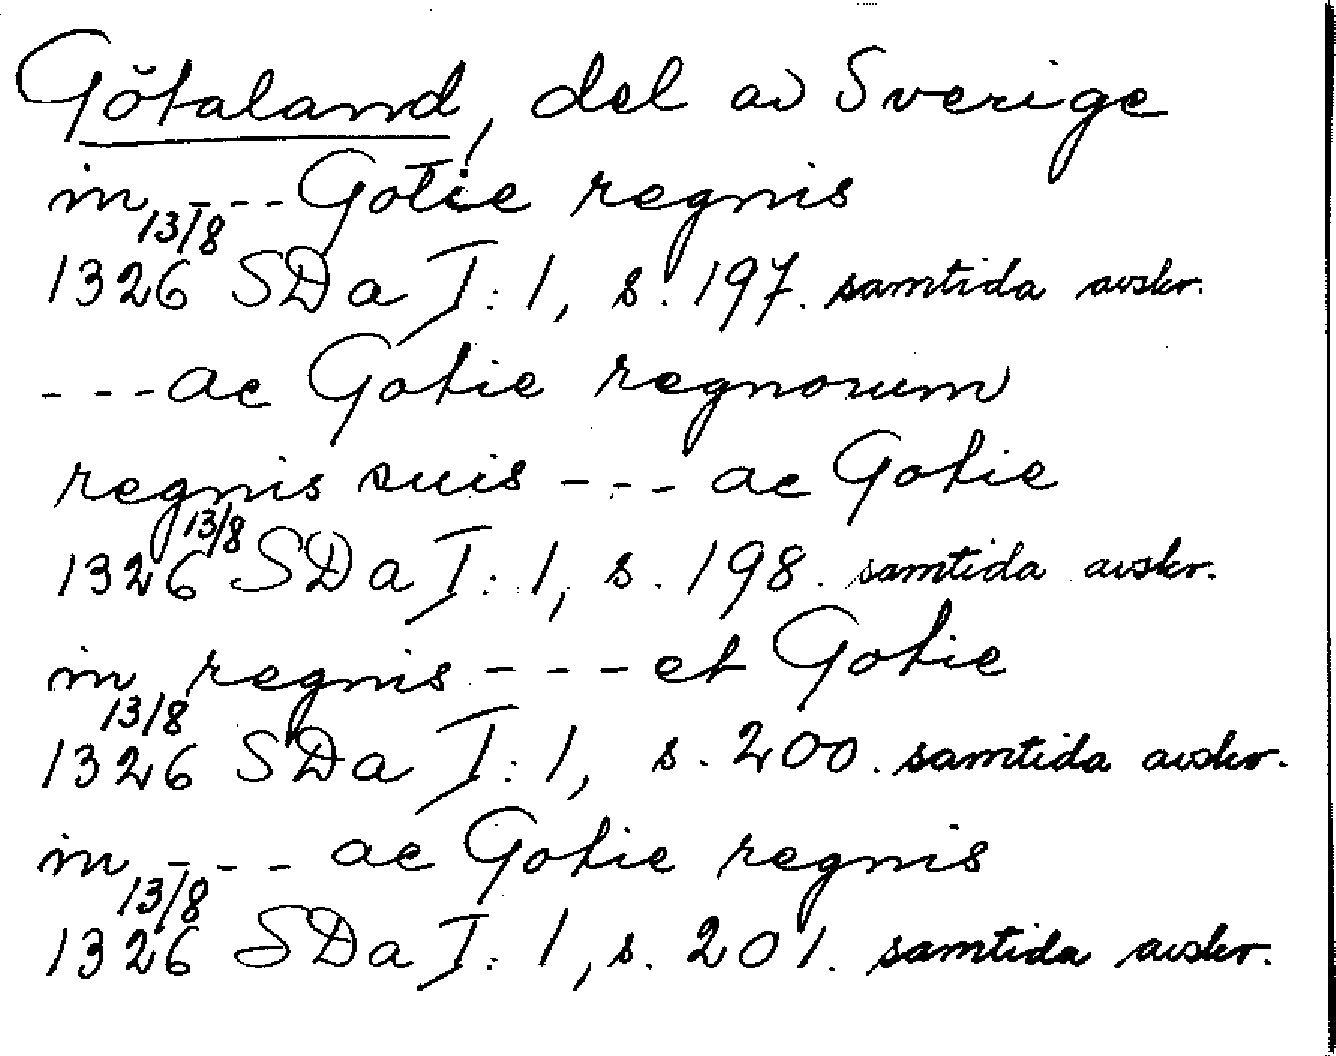 Götaland, del av Sverige
in --- Gotie regnis
13/8
1326 SDa I:1, s. 197. samtida avskr.
--- ac Gotie regnorum
regnis suis --- ac Gotie
13/8
1326 SDa I:1, s. 198. samtida avskr.
in regnis --- et Gotie
13/8
1326 SDa I:1, s. 200. samtida avskr.
in --- ac Gotie regnis
13/8
1326 SDa I:1, s. 201. samtida avskr.